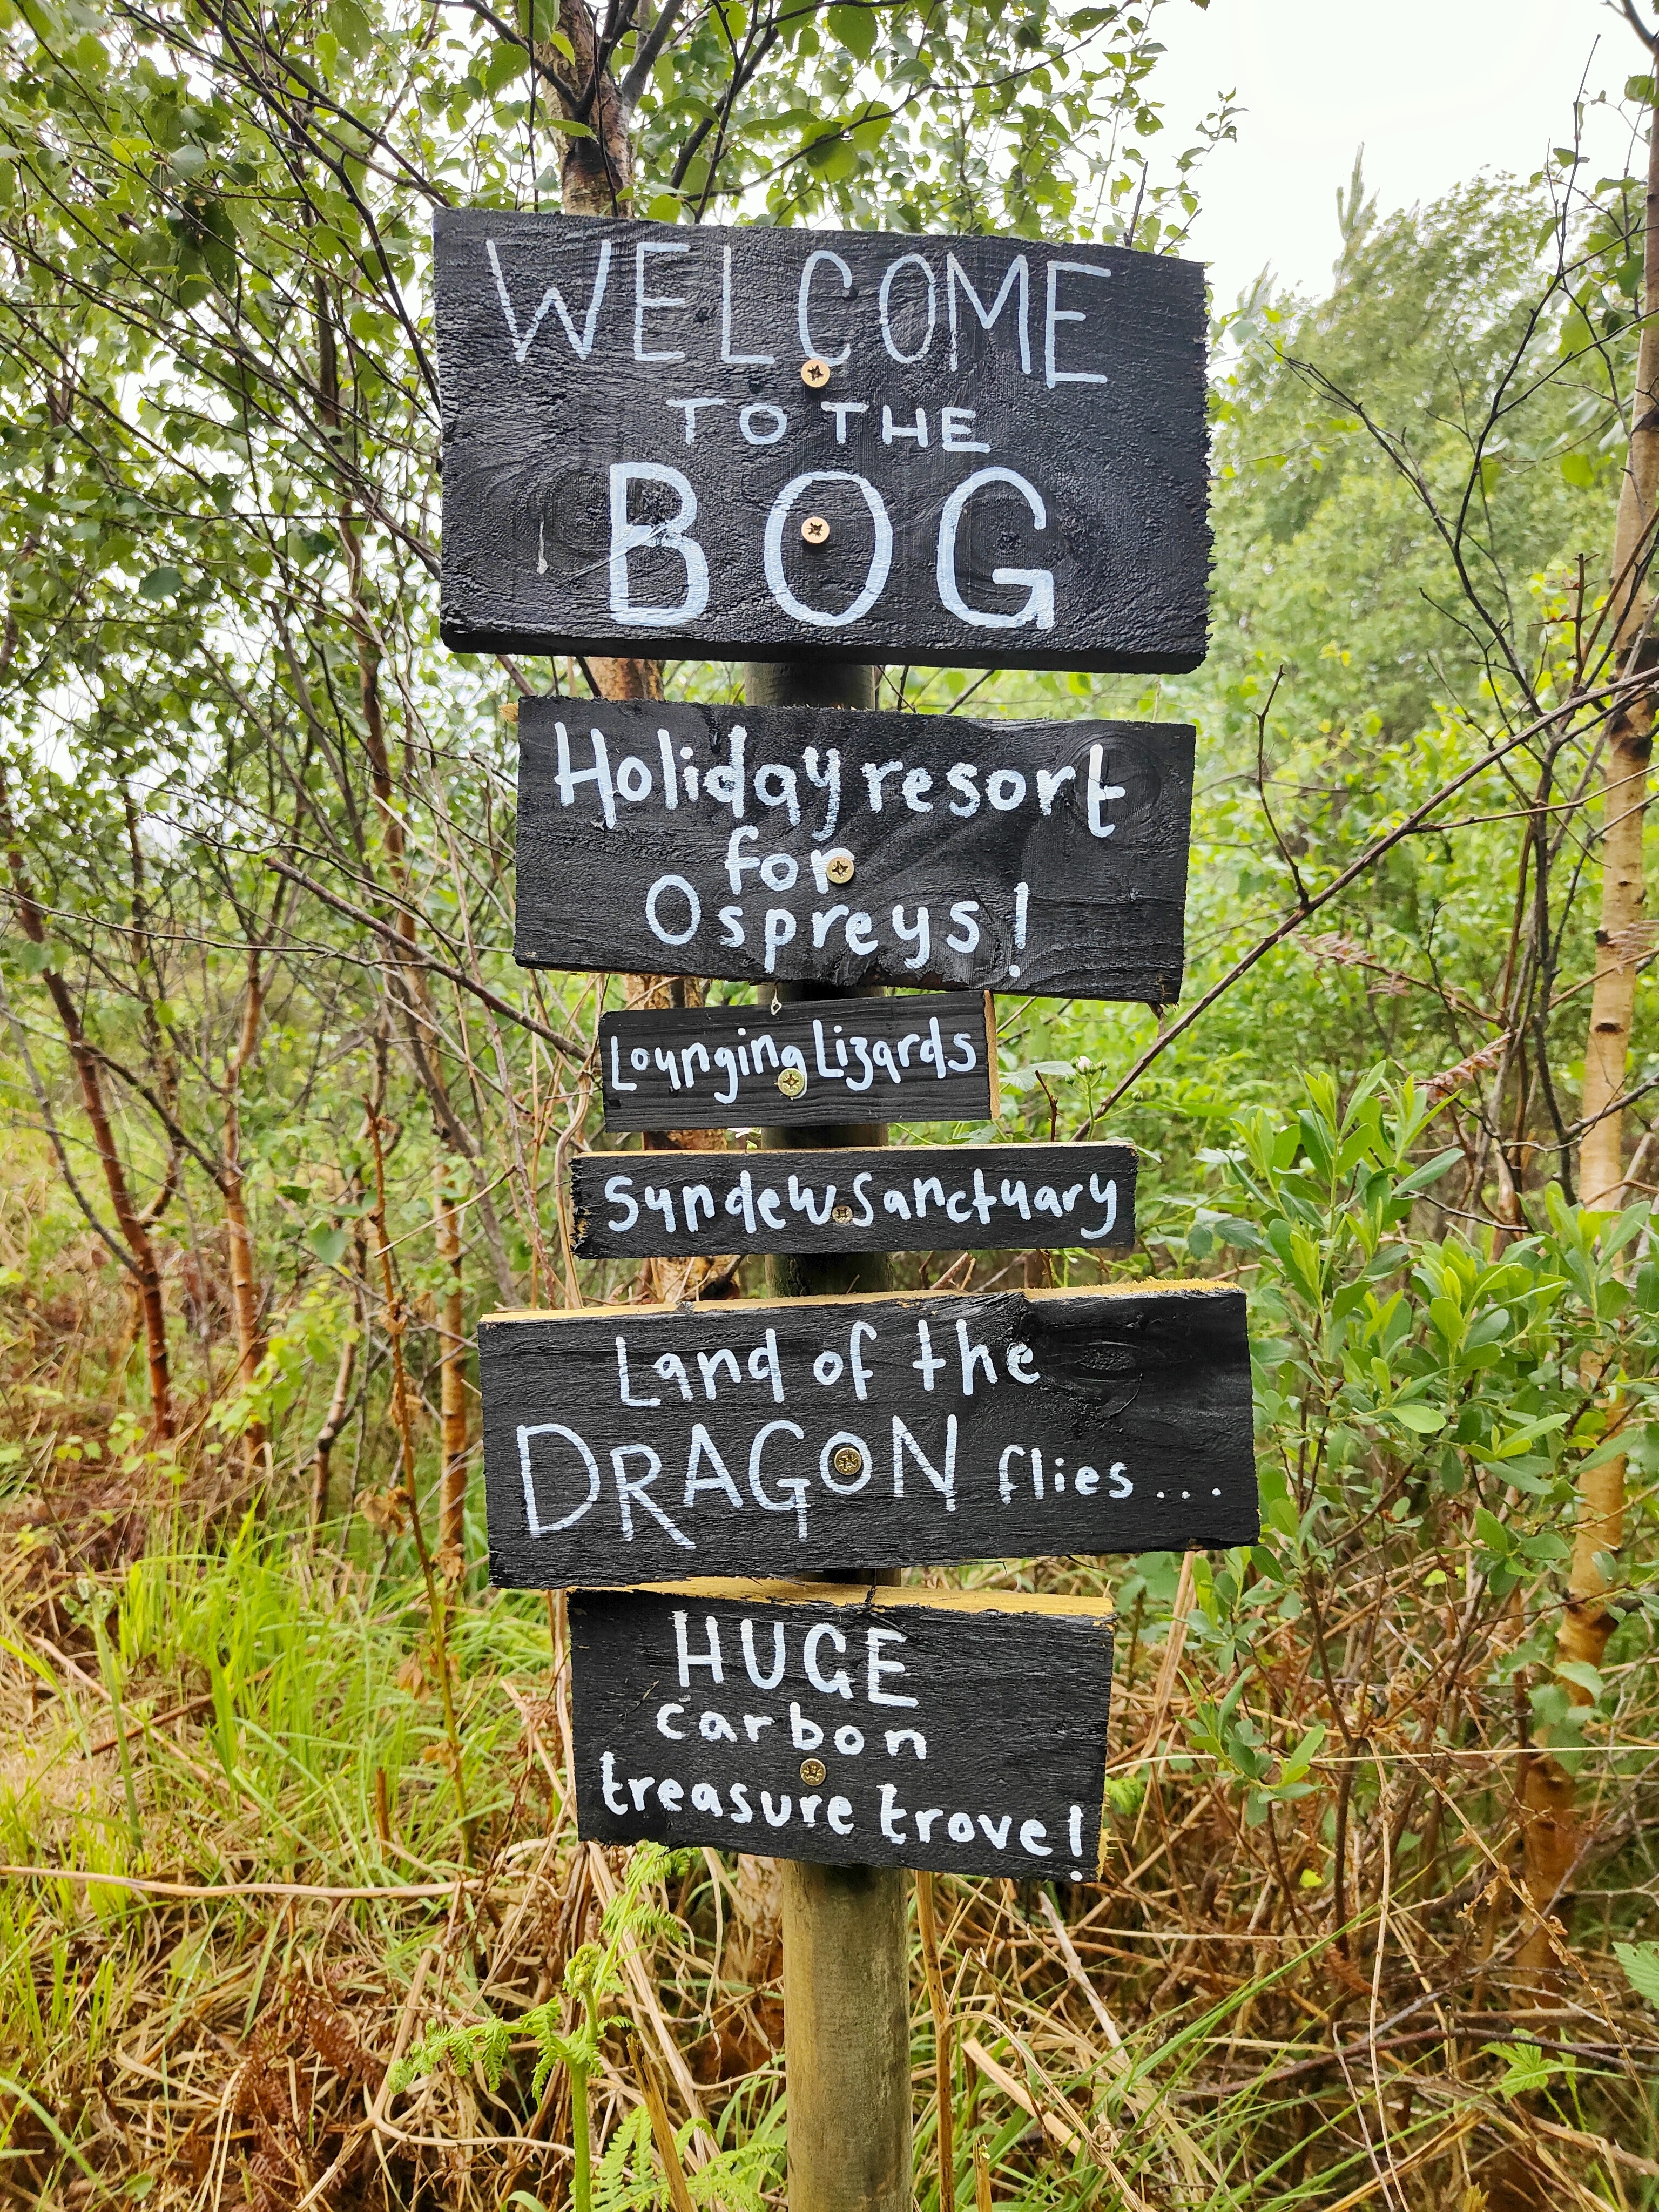 WELCOME
TO THE
BOG
Holiday resort
for
Ospreys!
Lounging Lizards
Sundew Sanctuary
Land of the
DRAGON flies...
HUGE
carbon
treasure trove!